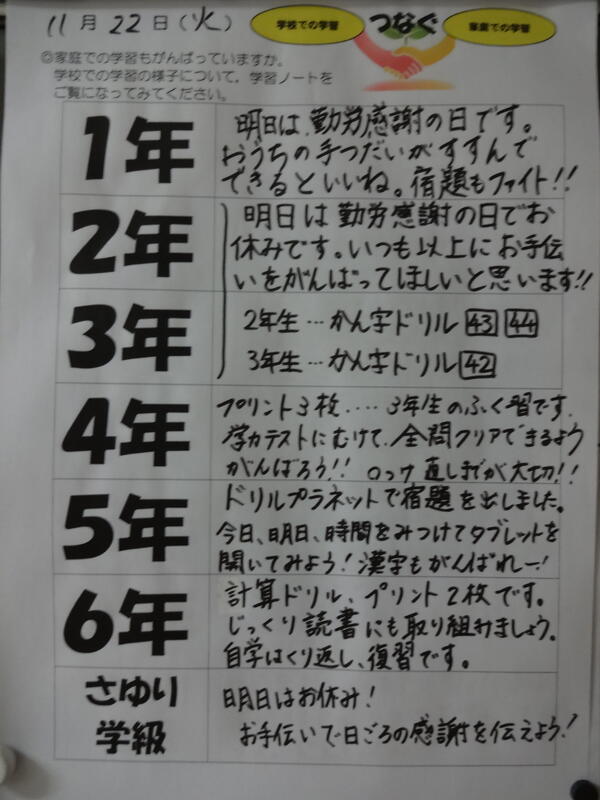 11月22日(火)
学校での学習 つなぐ 家庭での学習
◎家庭での学習もがんばっていますか。
学校での学習の様子について、学習ノートを
ご覧になってみてください。
1年
明日は、勤労感謝の日です。
おうちの手つだいがすすんで
できるといいね。宿題もファイト!!
2年
明日は勤労感謝の日でお
休みです。いつも以上にお手伝
いをがんばってほしいと思います!!
3年
2年生…かん字ドリル 43 44
3年生…かん字ドリル 42
4年
プリント3枚‥‥3年生のふく習です。
学力テストにむけて、全問クリアできるよう
がんばろう!! 〇つけ 直しまでが大切!!
5年
ドリルプラネットで宿題を出しました。
今日、明日、時間をみつけてタブレットを
開いてみよう!漢字もがんばれー!
6年
計算ドリル、プリント2枚です。
じっくり読書にも取り組みましょう。
自学はくり返し、復習です。
さゆり
学級
明日はお休み!
お手伝いで日ごろの感謝を伝えよう!